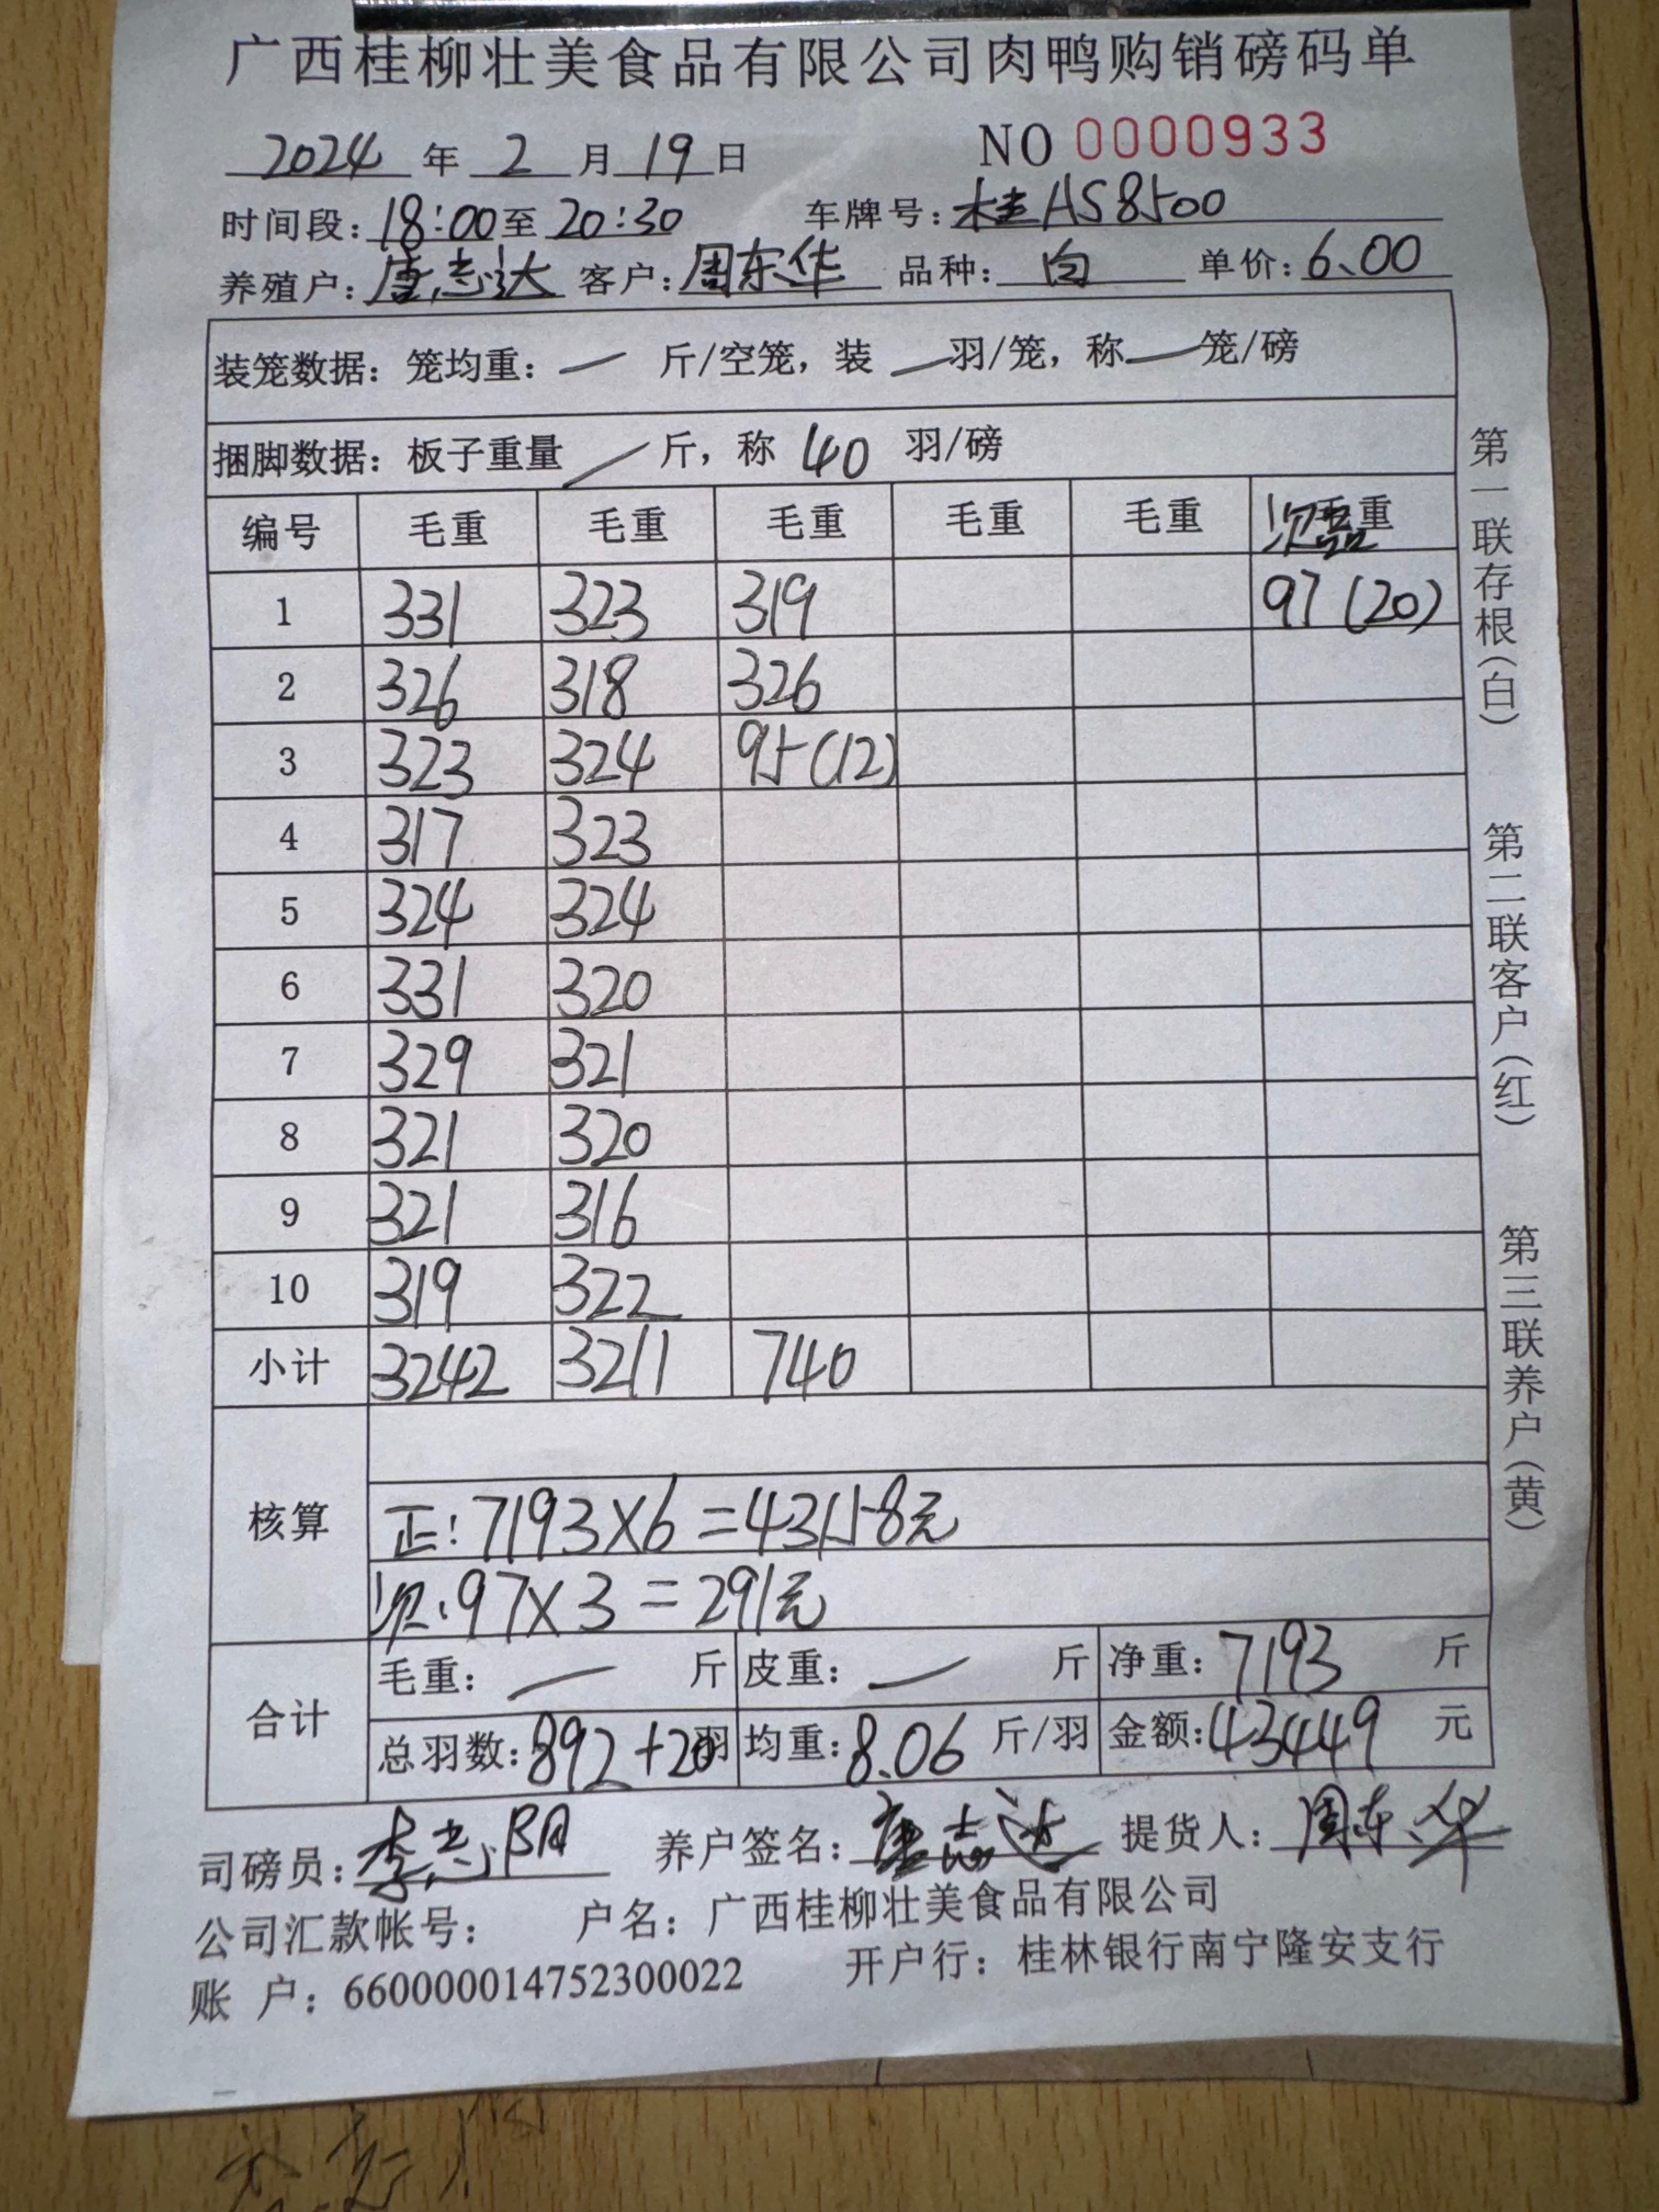 广西桂柳壮美食品有限公司肉鸭购销磅码单
2024 年 2 月 19 日 NO 0000933
时间段: 18:00 至 20:30 车牌号: 桂AS8500
养殖户: 唐志达 客户: 周东华 品种: 白 单价: 6.00
装笼数据: 笼均重: — 斤/空笼, 装 — 羽/笼, 称 — 笼/磅
捆脚数据: 板子重量 — 斤, 称 40 羽/磅
编号 毛重 毛重 毛重 毛重 毛重 次品 重
1 331 323 319 97(20)
2 326 318 326
3 323 324 95(12)
4 317 323
5 324 324
6 331 320
7 329 321
8 321 320
9 321 316
10 319 322
小计 3242 3211 740
核算
正: 7193×6=43158元
次: 97×3=291元
合计
毛重: — 斤 皮重: — 斤 净重: 7193 斤
总羽数: 892+20羽 均重: 8.06 斤/羽 金额: 43449 元
司磅员: 李志阳 养户签名: 唐志达 提货人: 周东华
公司汇款帐号: 户名: 广西桂柳壮美食品有限公司
账 户: 660000014752300022 开户行: 桂林银行南宁隆安支行
第一联存根(白) 第二联客户(红) 第三联养户(黄)